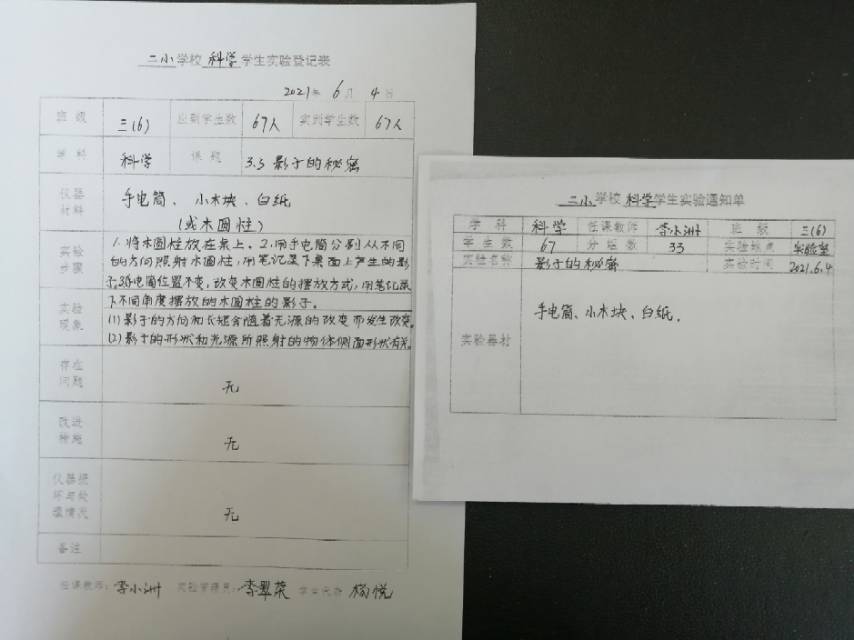 二小学校科学学生实验登记表
2021年6月4日
班级 三(6) 应到学生数 67人 实到学生数 67人
学科 科学 课题 3.5 影子的秘密
仪器材料 手电筒、小木块、白纸
(或木圆柱)
实验步骤 1.将木圆柱放在桌上。2.用手电筒分别从不同
的方向照射木圆柱,用笔记录下桌面上产生的影
子。3.手电筒位置不变,改变木圆柱的摆放方式,用笔记录
下不同角度摆放的木圆柱的影子。
实验现象 (1)影子的方向和长短会随着光源的改变而发生改变。
(2)影子的形状和光源所照射的物体侧面形状有关。
存在问题 无
改进措施 无
仪器损坏与处理情况 无
备注
任课教师:李小洲 实验管理员:李翠荣 学生代表 杨悦
二小学校科学学生实验通知单
学科 科学 任课教师 李小洲 班级 三(6)
学生数 67 分组数 33 实验地点 实验室
实验名称 影子的秘密 实验时间 2021.6.4
实验器材 手电筒、小木块、白纸。